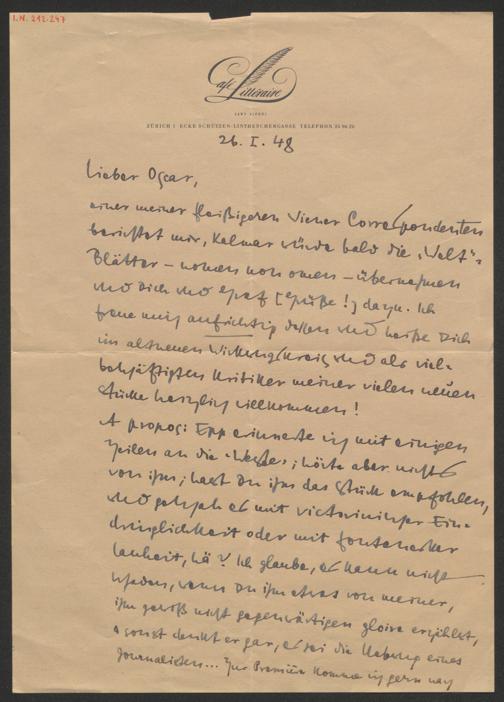 I.N. 212.247
Café Littéraire
ZÜRICH 1 ECKE SCHÜTZEN-LINTHESCHERGASSE TELEPHON
26. I. 48
Lieber Oscar,
einer meiner fleißigeren Wiener Correspondenten
berichtet mir, Kalmar würde bald die „Welt"-
Blätter – nomen non omen – übernehmen
und Dich und (Grüße!) dazu. Ich
freue mich aufrichtig dessen und heiße Dich
im altneuen Wirkungskreis und als viel-
beschäftigten Kritiker meiner vielen neuen
Stücke herzlich willkommen!
A propos: Epp erinnerte ich mit einigen
Zeilen an die; hörte aber nichts
von ihm; hast Du ihm das Stück empfohlen,
und geschah es mit Ein-
dringlichkeit oder mit
lauheit, hä? Ich glaube, es kann nicht
schaden, wenn Du ihm etwas von meiner,
ihm gewiß nicht gegenwärtigen gloire erzählst,
sonst denkt er gar, es sei die Uebung eines
Journalisten... Zur Première komme ich gern nach